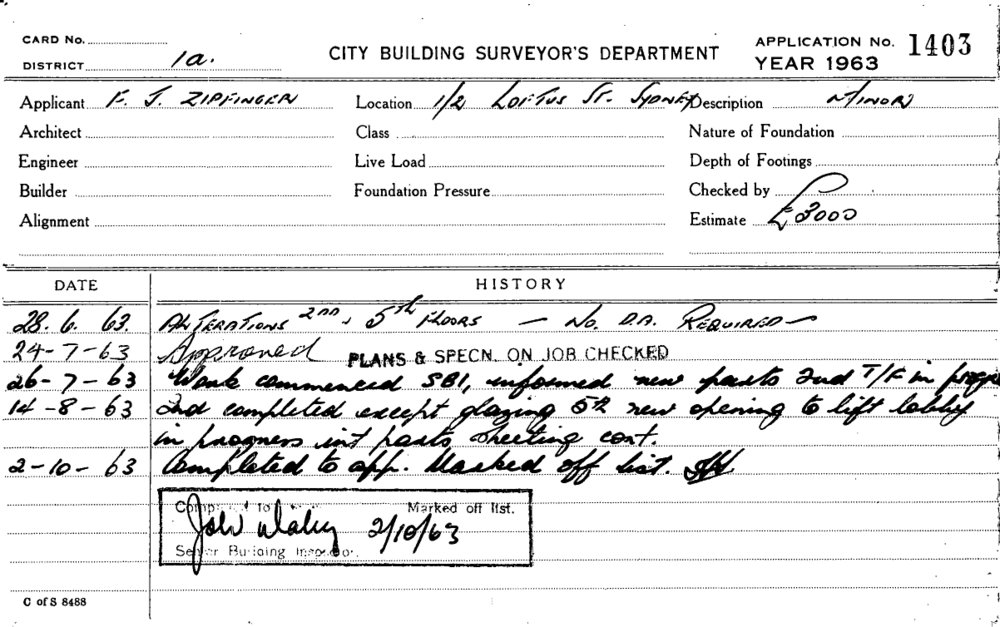 CARD No.
DISTRICT 1a.
CITY BUILDING SURVEYOR'S DEPARTMENT
APPLICATION No. 1403
YEAR 1963
Applicant F. J. ZIPFINGER Location 1/2 LOFTUS ST. SYDNEY Description MINOR
Architect Class Nature of Foundation
Engineer Live Load Depth of Footings
Builder Foundation Pressure Checked by
Alignment Estimate £3000
DATE HISTORY
28. 6. 63. ALTERATIONS 2ND, 5th FLOORS — No. D.A. REQUIRED —
24-7-63 Approved PLANS & SPECN. ON JOB CHECKED
26-7-63 Work commenced SBI, informed new parts 2nd T/F in
14-8-63 2nd completed except glazing 5th new opening to lift lobby
in progress int parts sheeting cont.
2-10-63 Completed to app. Marked off list.
Marked off list.
2/10/63
Senior Building Inspector.
C of S 8488